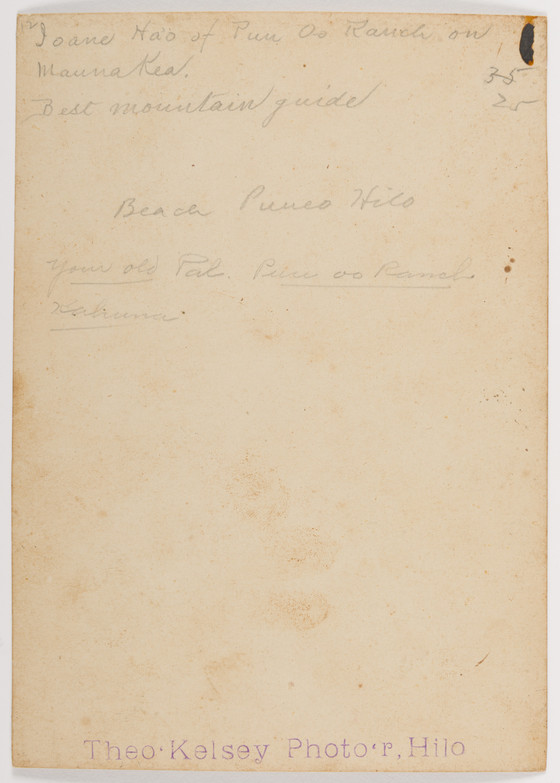 Ioane Hao of Puu Oo Ranch on
Mauna Kea.
Best mountain guide
35
25
Beach Pueo Hilo
Your old Pal. Puu oo Ranch
Kahuna
Theo. Kelsey Photo'r, Hilo